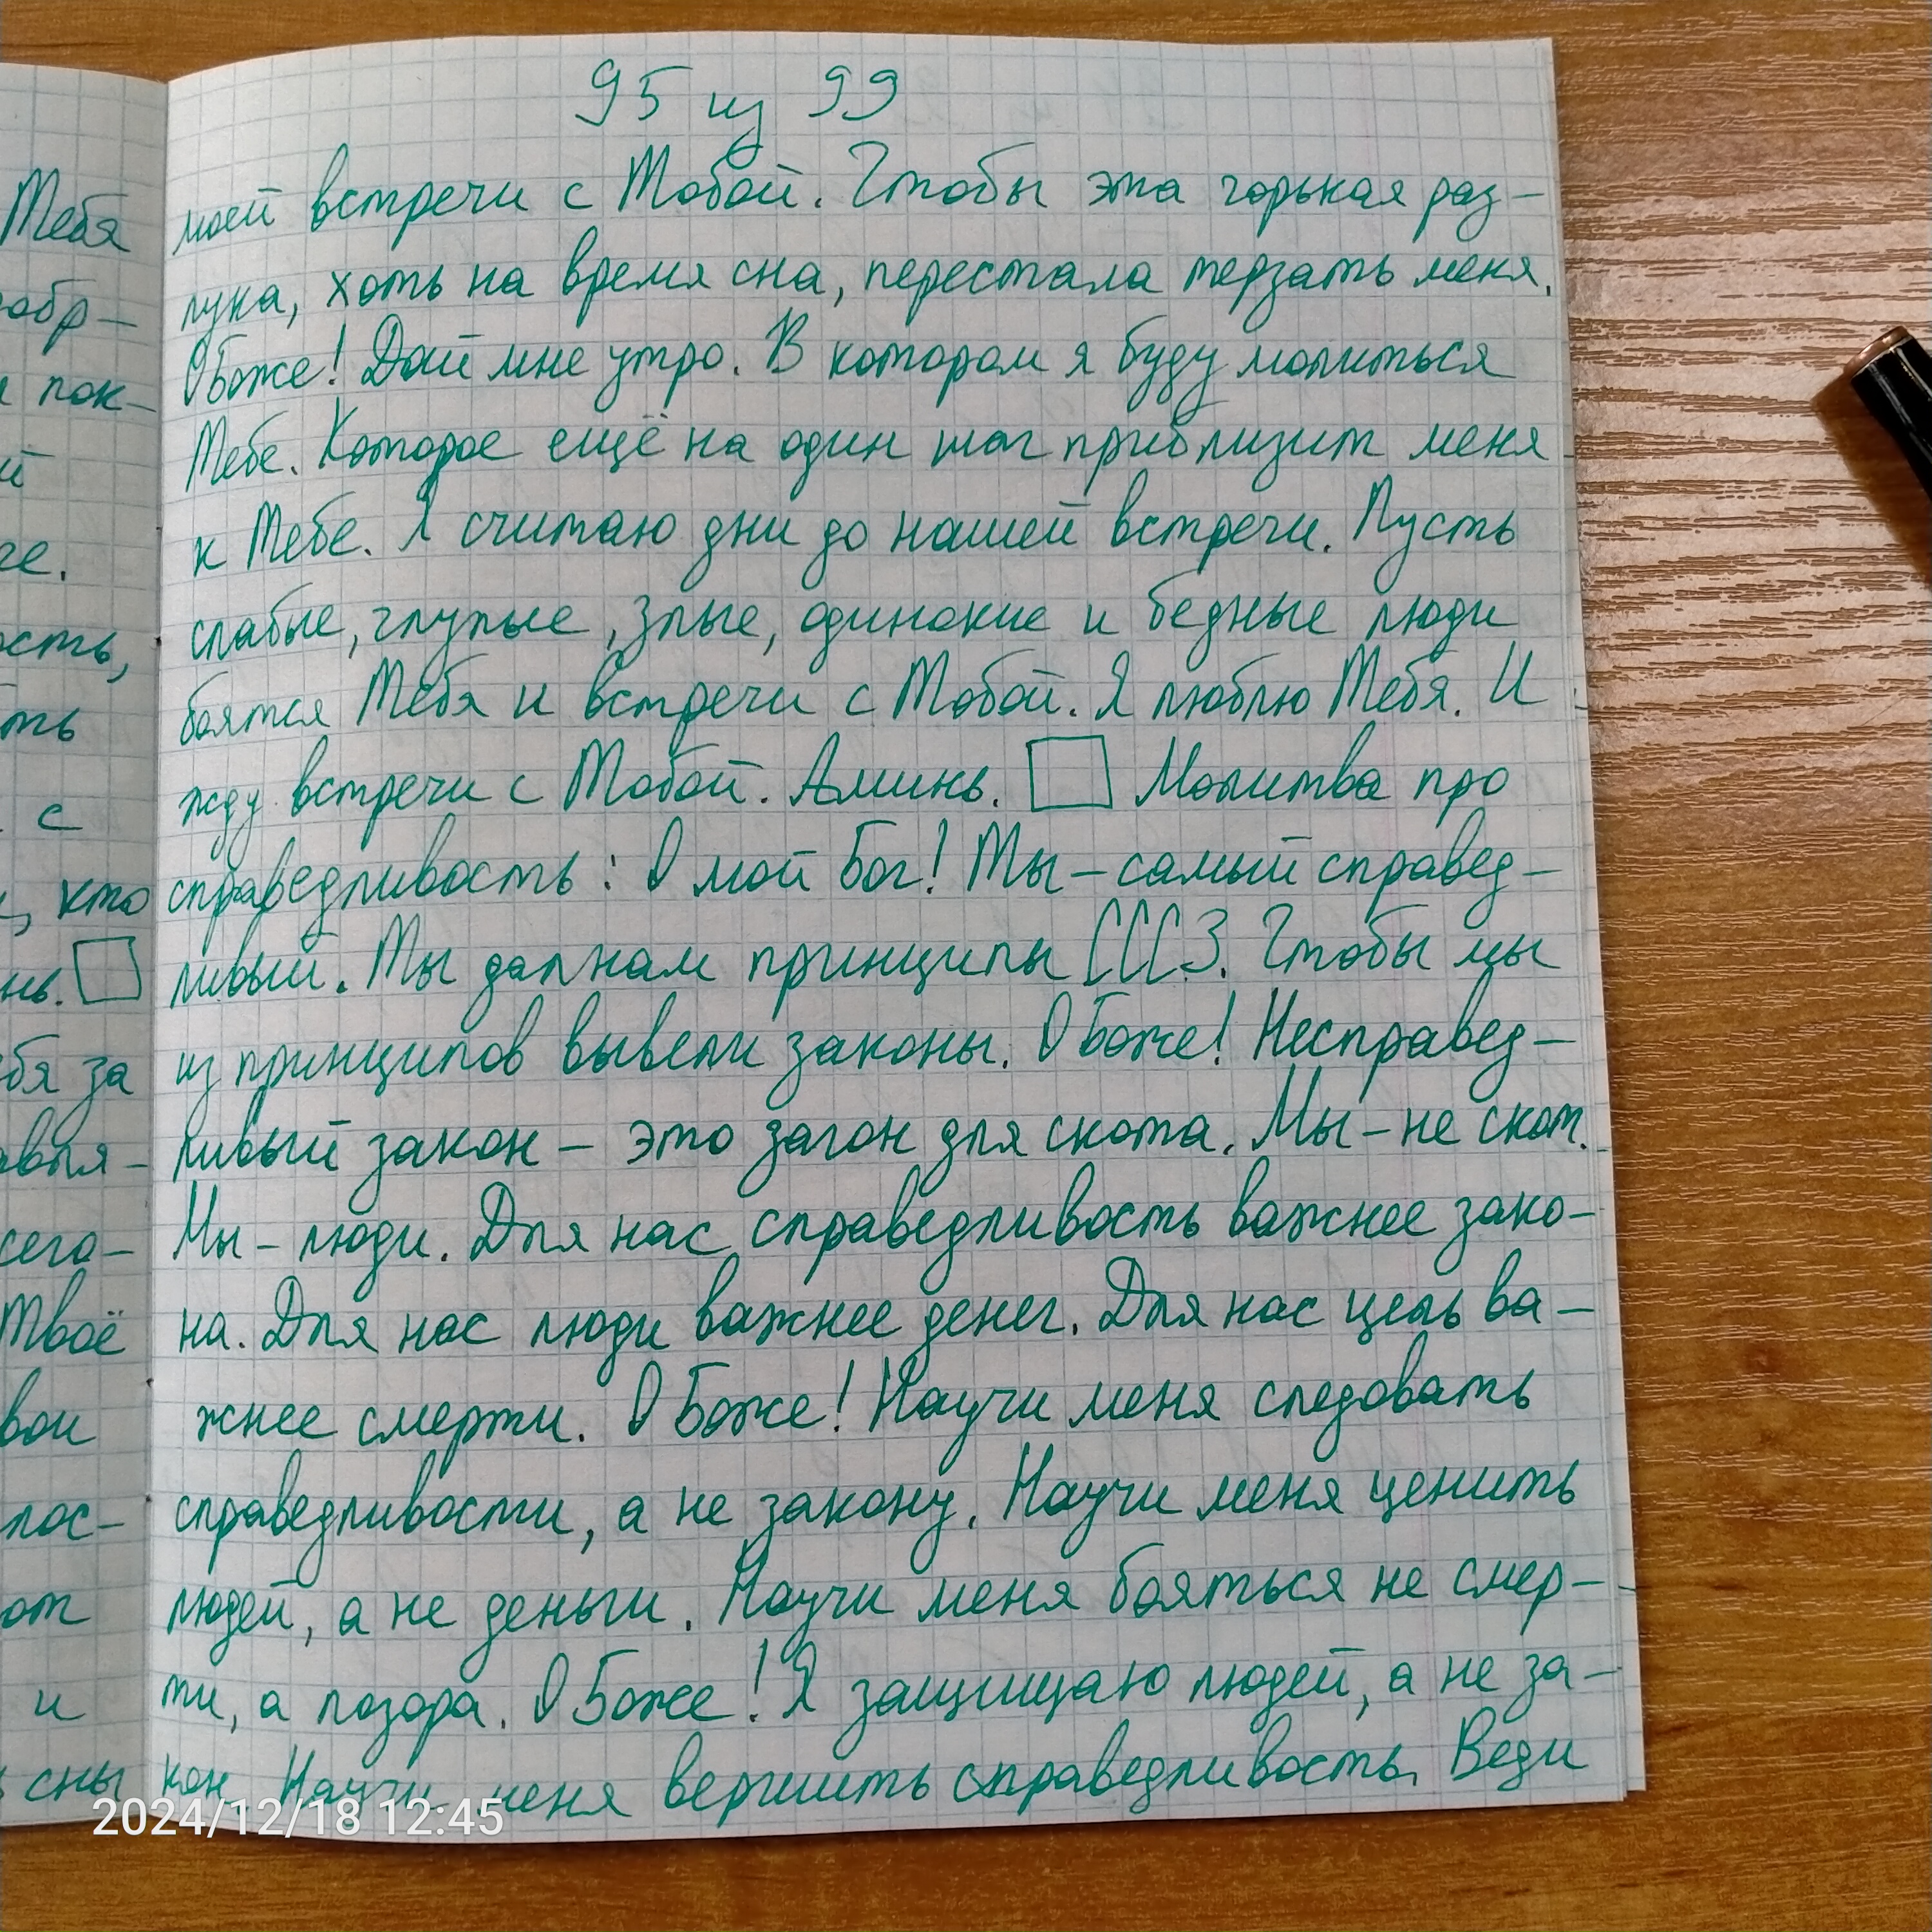 95 из 99
моей встречи с Тобой. Чтобы эта горькая раз-
лука, хоть на время сна, перестала терзать меня.
О Боже! Дай мне утро. В котором я буду молиться
Тебе. Которое ещё на один шаг приблизит меня
к Тебе. Я считаю дни до нашей встречи. Пусть
слабые, глупые, злые, одинокие и бедные люди
боятся Тебя и встречи с Тобой. Я люблю Тебя. И
жду встречи с Тобой. Аминь. Молитва про
справедливость: О мой Бог! Ты - самый справед-
ливый. Ты дал нам принципы СССЗ. Чтобы мы
из принципов вывели законы. О Боже! Несправед-
ливый закон - это загон для скота. Мы - не скот.
Мы - люди. Для нас справедливость важнее зако-
на. Для нас люди важнее денег. Для нас цель ва-
жнее смерти. О Боже! Научи меня следовать
справедливости, а не закону. Научи меня ценить
людей, а не деньги. Научи меня бояться не смер-
ти, а позора. О Боже! Я защищаю людей, а не за-
кон. Научи меня вершить справедливость. Веди
Тебя
обр-
и пок-
й
ге.
ость,
ть
с
, кто
нь.
ебя за
авля-
сего-
Твоё
вои
пос-
от
и
сны
2024/12/18 12:45